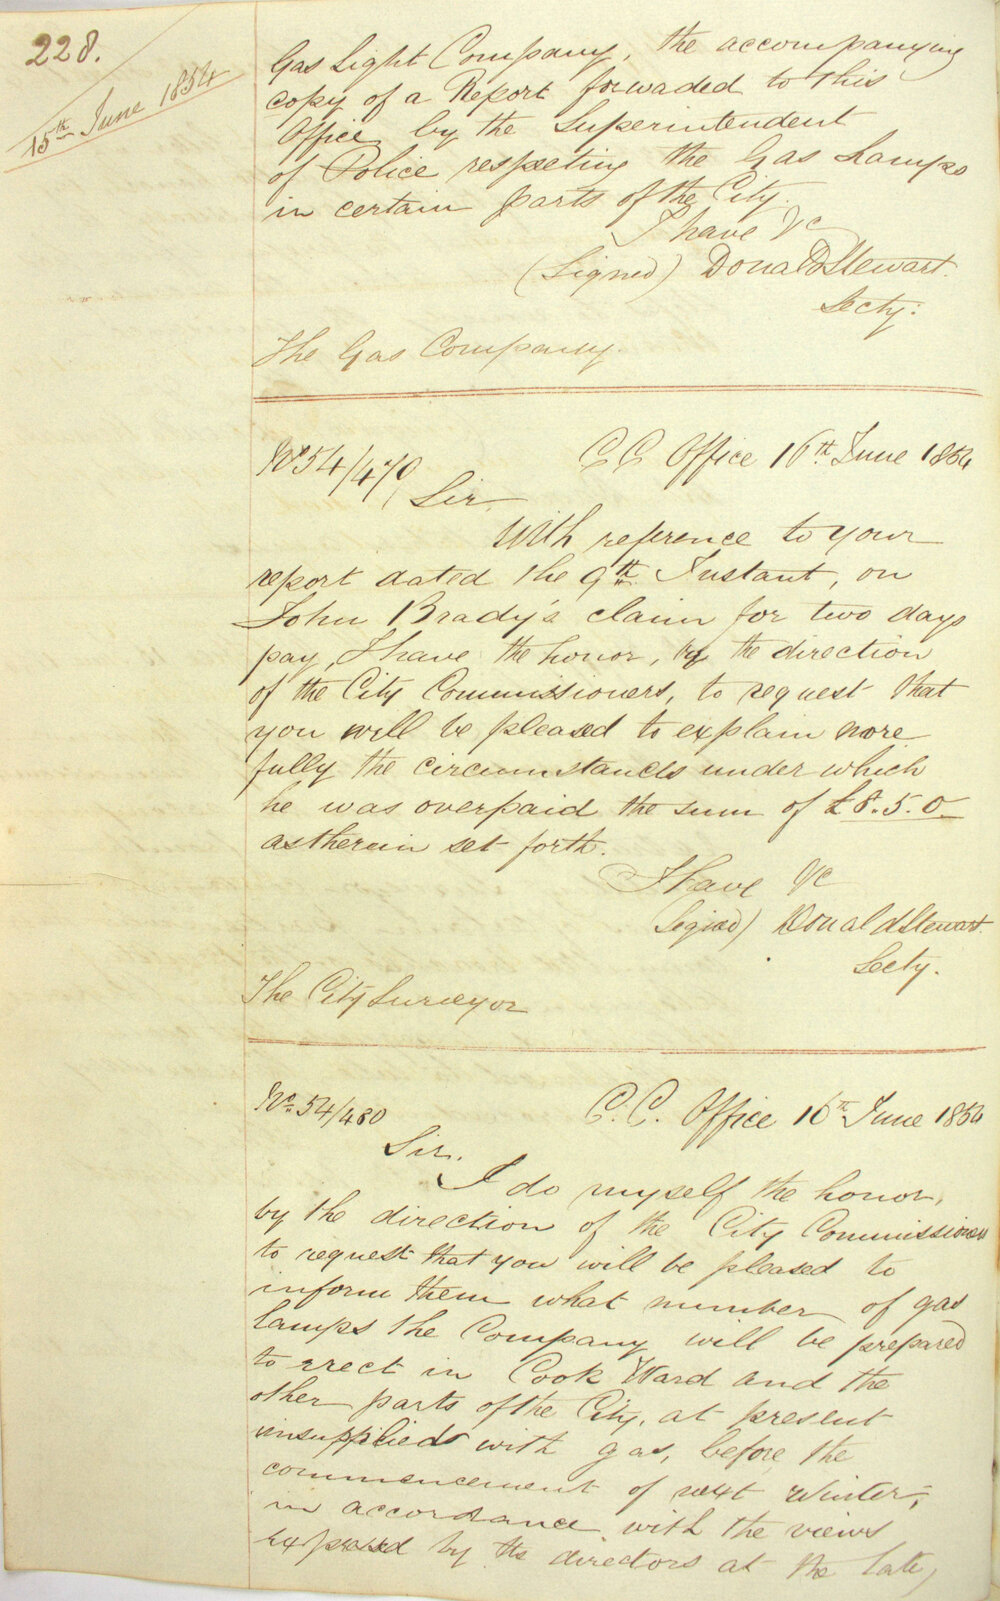 228.
15th June 1854
Gas Light Company, the accompanying
copy of a Report forwaded to this
Office by the Superintendent
of Police respecting the Gas Lamps
in certain parts of the City.
I have &c
(Signed) Donald Stewart.
Secty:
The Gas Company.
No 54/470
C C Office 16th June 1854
Sir
With reference to your
report dated the 9th Instant, on
John Brady's claim for two days
pay, I have the honor, by the direction
of the City Commissioners, to request that
you will be pleased to explain more
fully the circumstances under which
he was overpaid the sum of £8.5.0
as therein set forth.
I have &c
Signed) Donald Stewart.
Secty.
The City Surveyor
No. 54/480
C. C. Office 16th June 1854
Sir.
I do myself the honor,
by the direction of the City Commissioners
to request that you will be pleased to
inform them what number of gas
lamps the Company will be prepared
to erect in Cook Ward and the
other parts of the City, at present
unsupplied with gas, before the
commencement of next Winter,
in accordance with the views
expressed by the directors at the late